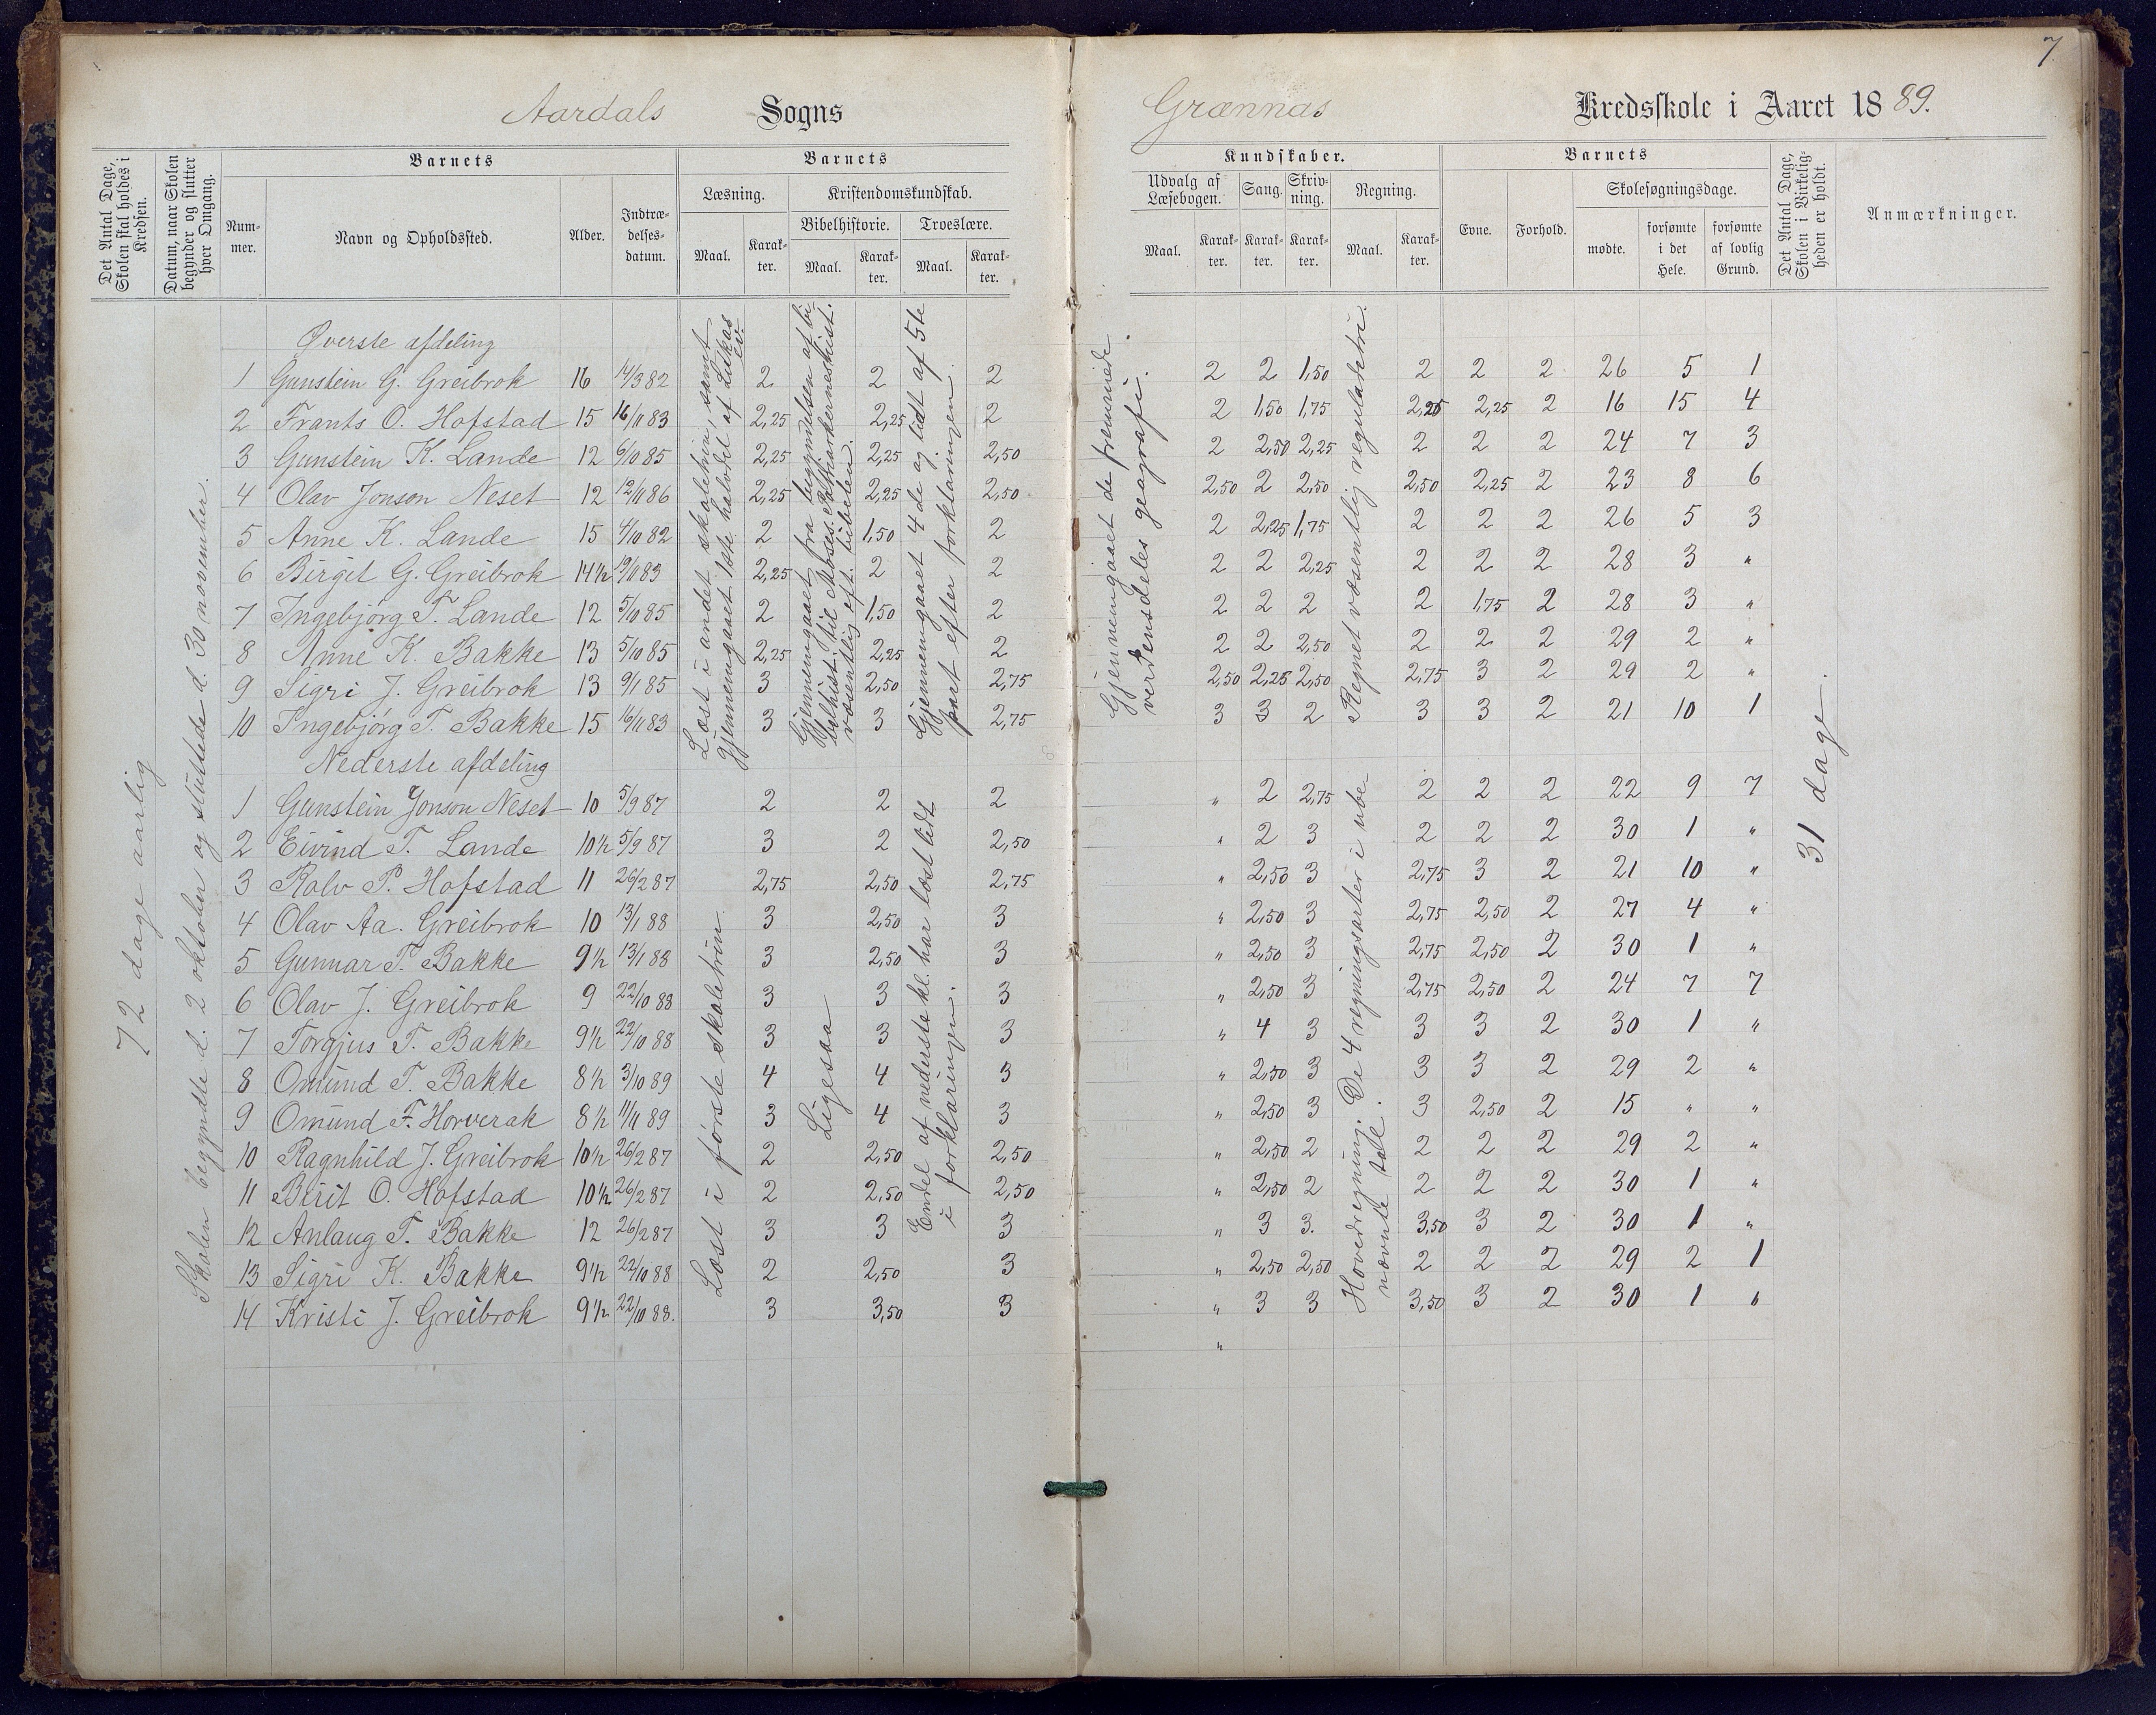 7
Aardals Sogns
Grænnas Kredsskole i Aaret 1889.
Det Antal Dage, Skolen skal holdes i Kredsen.
Datum, naar Skolen begynder og slutter hver Omgang.
Barnets
Nummer.
Navn og Opholdssted.
Alder.
Indtrædelsesdatum.
Barnets
Læsning.
Maal.
Karakter.
Kristendomskundskab.
Bibelhistorie.
Maal.
Karakter.
Troeslære.
Maal.
Karakter.
Kundskaber.
Udvalg af Læsebogen.
Maal.
Karakter.
Sang.
Karakter.
Skrivning.
Karakter.
Regning.
Maal.
Karakter.
Barnets
Evne.
Forhold.
Skolesøgningsdage.
mødte.
forsømte i det Hele.
forsømte af lovlig Grund.
Det Antal Dage, Skolen i Virkeligheden er holdt.
Anmærkninger.
72 dage aarlig
Skolen begyndte d. 2 oktober og sluttede d. 30 november.
Øverste afdeling
1 Gunstein G. Greibrok 16 14/3 82 2 2 2 2 2 1,50 2 2 2 26 5 1
2 Frants O. Hofstad 15 16/11 83 2,25 2,25 2 2 1,50 1,75 2,25 2,25 2 16 15 4
3 Gunstein K. Lande 12 6/10 85 2,25 2,25 2,50 2 2,50 2,25 2 2 2 24 7 3
4 Olav Jonson Neset 12 12/11 86 2,25 2,25 2,50 2,50 2 2,50 2,50 2,25 2 23 8 6
5 Anne K. Lande 15 4/10 82 2 1,50 2 2 2,25 1,75 2 2 2 26 5 3
6 Birgit G. Greibrok 14½ 19/11 83 2,25 2 2 2 2 2,25 2 2 2 28 3 "
7 Ingebjørg T. Lande 12 5/10 85 2 1,50 2 2 2 2 2 1,75 2 28 3 "
8 Anne K. Bakke 13 5/10 85 2,25 2,25 2 2 2 2,50 2 2 2 29 2 "
9 Sigri J. Greibrok 13 9/1 85 3 2,50 2,75 2,50 2,25 2,50 2,75 3 2 29 2 "
10 Ingebjørg T. Bakke 15 16/11 83 3 3 2,75 3 3 2 3 3 2 21 10 1
Læst i andet skoletrin, samt
gjennemgaaet 1ste halvdel af Lukas
ev.
Gjennemgaaet fra begyndelsen af bi
belhist. til Moses. Patriarkerneshist.
væsentlig eft. bibelen.
Gjennemgaaet 4de og lidt af 5te
part efter forklaringen.
Gjennemgaaet de fremmede
verdensdeles geagrafi.
Regnet væsentlig reguladetri.
31 dage.
Nederste afdeling
1 Gunstein Jonson Neset 10 5/9 87 2 2 2 " 2 2,75 2 2 2 22 9 7
2 Eivind T. Lande 10½ 5/9 87 3 2 2,50 " 2 3 2 2 2 30 1 "
3 Rolv P. Hofstad 11 26/2 87 2,75 2,50 2,75 " 2,50 3 2,75 3 2 21 10 "
4 Olav Aa. Greibrok 10 13/1 88 3 2,50 3 " 2,50 3 2,75 2,50 2 27 4 "
5 Gunnar T. Bakke 9½ 13/1 88 3 2,50 3 " 2,50 3 2,75 2,50 2 30 1 "
6 Olav J. Greibrok 9 22/10 88 3 3 3 " 2,50 3 2,75 2,50 2 24 7 7
7 Torgjus T. Bakke 9½ 22/10 88 3 3 3 " 4 3 3 3 2 30 1 "
8 Omund T. Bakke 8½ 3/10 89 4 4 3 " 2,50 3 3 3 2 29 2 "
9 Omund F. Horverak 8½ 11/11 89 3 4 3 " 2,50 3 3 2,50 2 15 " "
10 Ragnhild J. Greibrok 10½ 26/2 87 2 2,50 2,50 " 2,50 2 2 2 2 29 2 "
11 Birit O. Hofstad 10½ 26/2 87 2 2,50 2,50 " 2,50 2 2 2 2 30 1 "
12 Anlaug T. Bakke 12 26/2 87 3 3 3 " 3 3. 3,50 3 2 30 1 "
13 Sigri K. Bakke 9½ 22/10 88 2 2,50 3 " 2,50 2,50 2 2 2 29 2 1
14 Kristi J. Greibrok 9½ 22/10 88. 3 3,50 3 " 3 3 3,50 3 2 30 1 "
"
Læst i første skoletrin
Ligesaa
Endel af nederste kl. har læst lidt
i forklaringen.
Hovedregning. De 4 regningsarter i ube
nævnte tall.